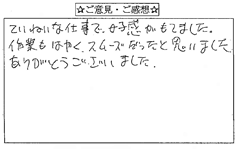 ☆ご意見・ご感想☆
ていねいな仕事で、好感がもてました。
作業もはやく、スムーズだったと思いました。
ありがとうございました。